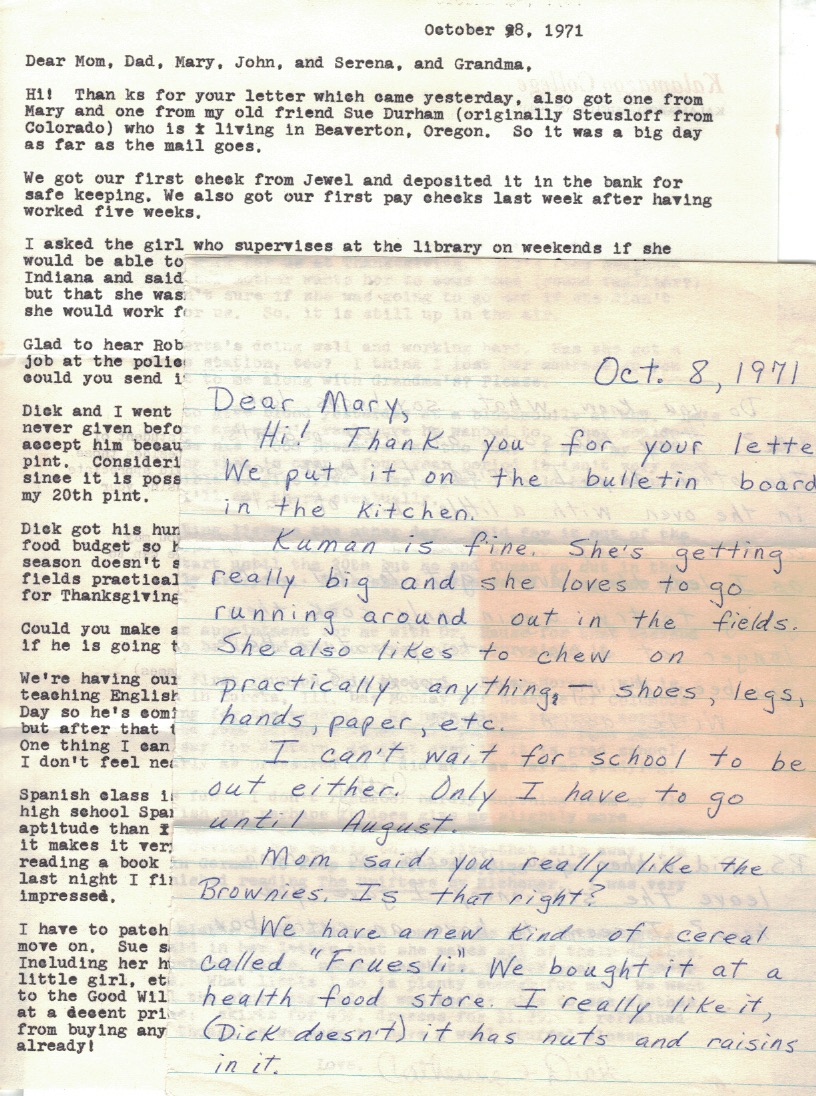 October 28, 1971
Dear Mom, Dad, Mary, John, and Serena, and Grandma,
Hi! Than ks for your letter which came yesterday, also got one from
Mary and one from my old friend Sue Durham (originally Steusloff from
Colorado) who is living in Beaverton, Oregon. So it was a big day
as far as the mail goes.
We got our first check from Jewel and deposited it in the bank for
safe keeping. We also got our first pay checks last week after having
worked five weeks.
I asked the girl who supervises at the library on weekends if she
would be able to
Indiana and said
but that she was
she would work f
Glad to hear Rob
job at the police
could you send i
Dick and I went
never given befo
accept him becau
pint. Consideri
since it is poss
my 20th pint.
Dick got his hun
food budget so h
season doesn't s
fields practical
for Thanksgiving
Could you make a
if he is going t
We're having our
teaching English
Day so he's comi
but after that t
One thing I can
I don't feel nea
Spanish class i
high school Spa
aptitude than I
it makes it ver
reading a book
last night I fi
impressed.
I have to patch
move on. Sue s
Including her h
little girl, et
to the Good Wil
at a decent pri
from buying any
already!
Oct. 8, 1971
Dear Mary,
Hi! Thank you for your lette
We put it on the bulletin board
in the kitchen.
Kuman is fine. She's getting
really big and she loves to go
running around out in the fields.
She also likes to chew on
practically anything, — shoes, legs,
hands, paper, etc.
I can't wait for school to be
out either. Only I have to go
until August.
Mom said you really like the
Brownies. Is that right?
We have a new kind of cereal
called "Fruesli" We bought it at a
health food store. I really like it,
(Dick doesn't) it has nuts and raisins
in it.